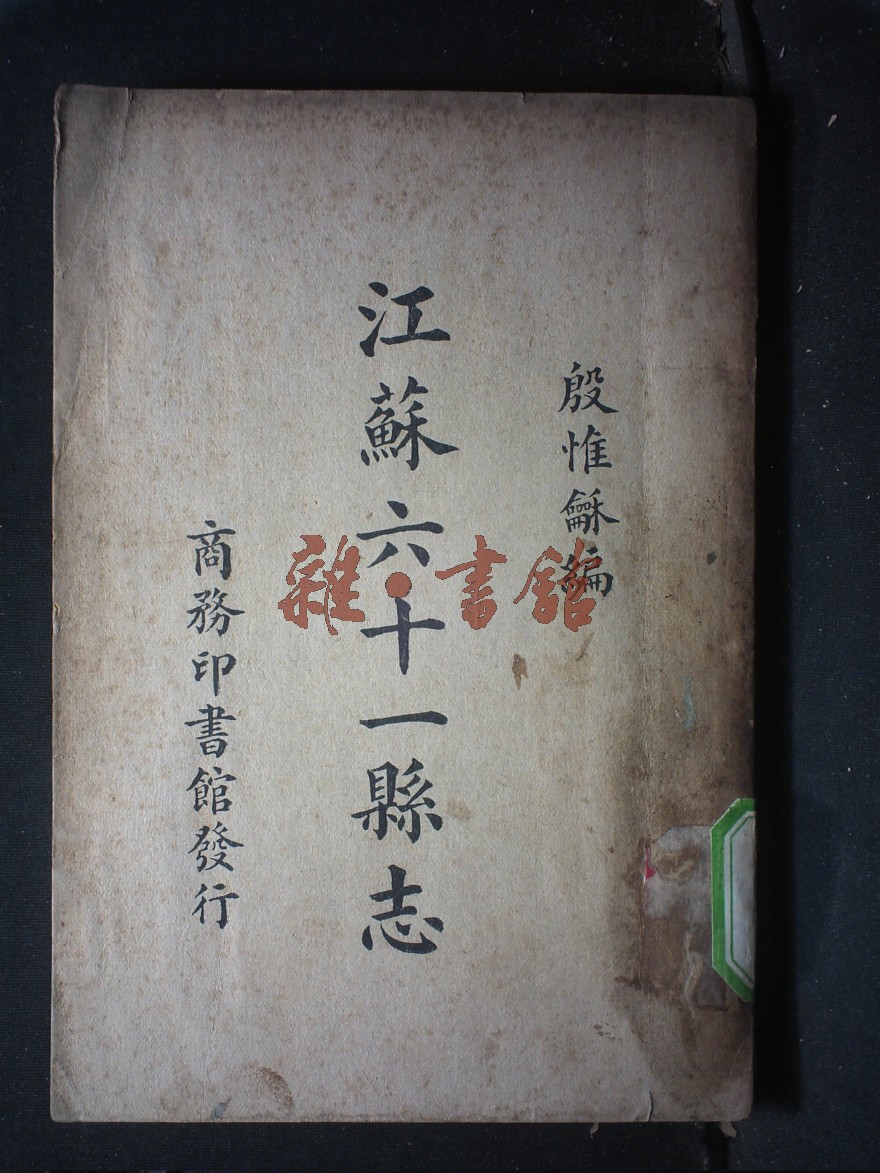 殷惟龢編
江蘇六十一縣志
商務印書館發行
雜·書館